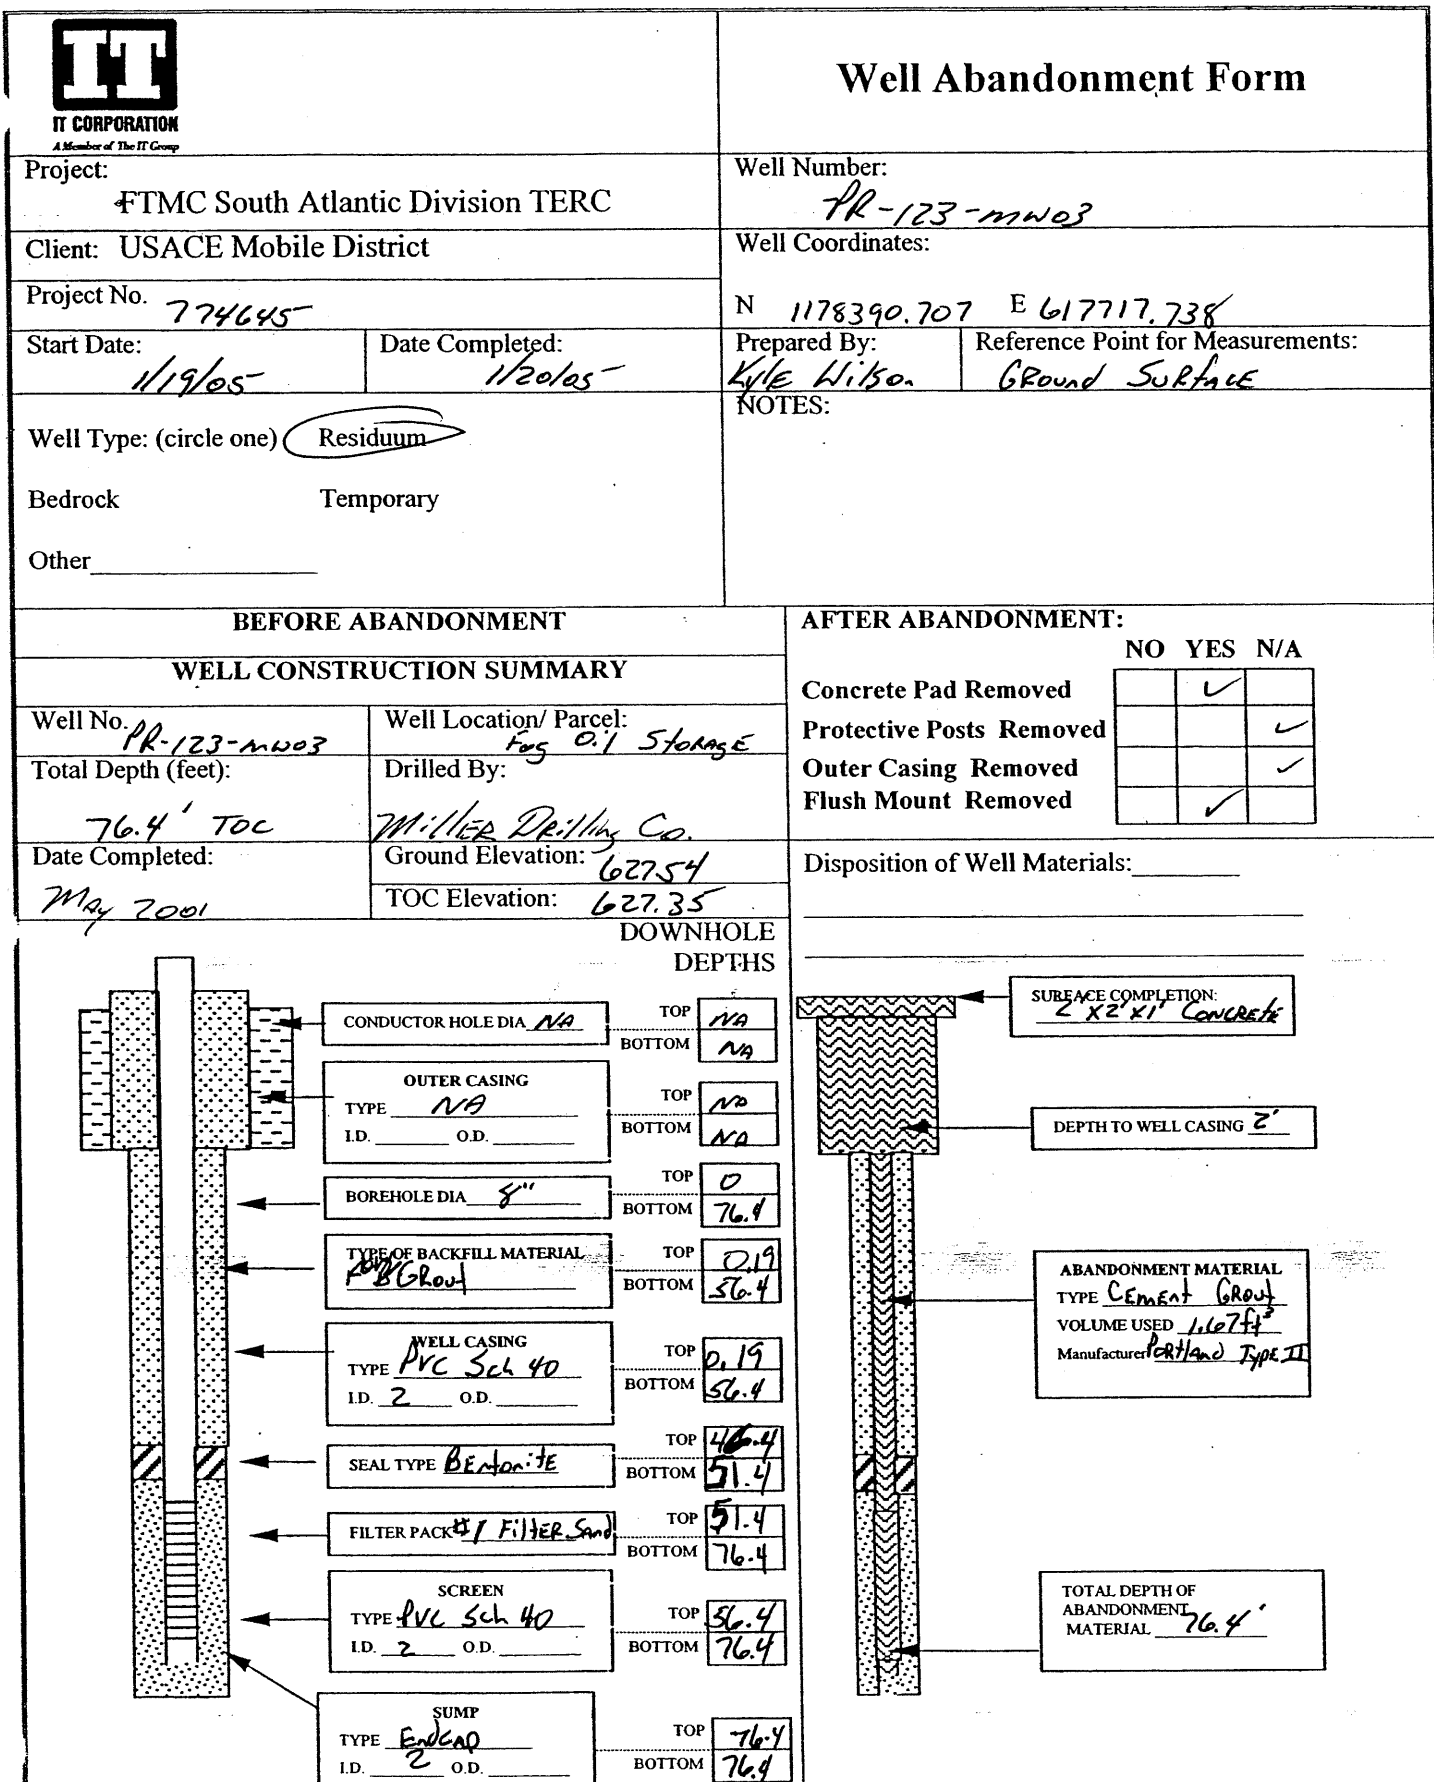 IT
IT CORPORATION
A Member of The IT Group
Well Abandonment Form
Project:
FTMC South Atlantic Division TERC
Well Number:
PR-123-MW03
Client: USACE Mobile District
Well Coordinates:
Project No. 774645
N 1178390.707 E 617717.738
Start Date:
1/19/05
Date Completed:
1/20/05
Prepared By:
Kyle Wilson
Reference Point for Measurements:
GRound SURfACE
Well Type: (circle one) Residuum
Bedrock Temporary
Other
NOTES:
BEFORE ABANDONMENT
WELL CONSTRUCTION SUMMARY
Well No. PR-123-MW03
Well Location/ Parcel:
Fog Oil StoRAgE
Total Depth (feet):
76.4' TOC
Drilled By:
MillER DRilling Co.
Date Completed:
MAy 2001
Ground Elevation: 627.54
TOC Elevation: 627.35
AFTER ABANDONMENT:
NO YES N/A
Concrete Pad Removed ✓
Protective Posts Removed ✓
Outer Casing Removed ✓
Flush Mount Removed ✓
Disposition of Well Materials:
DOWNHOLE
DEPTHS
CONDUCTOR HOLE DIA NA
TOP NA
BOTTOM NA
OUTER CASING
TYPE NA
I.D. O.D.
TOP NA
BOTTOM NA
BOREHOLE DIA 8"
TOP 0
BOTTOM 76.4
TYPE OF BACKFILL MATERIAL
GRout
TOP 0.19
BOTTOM 56.4
WELL CASING
TYPE PVC Sch 40
I.D. 2 O.D.
TOP 0.19
BOTTOM 56.4
SEAL TYPE BEntonitE
TOP 46.4
BOTTOM 51.4
FILTER PACK #1 FiltER Sand
TOP 51.4
BOTTOM 76.4
SCREEN
TYPE PVC Sch 40
I.D. 2 O.D.
TOP 56.4
BOTTOM 76.4
SUMP
TYPE EndCAp
I.D. 2 O.D.
TOP 76.4
BOTTOM 76.4
SURFACE COMPLETION:
2'X2'X1' ConCREtE
DEPTH TO WELL CASING 2'
ABANDONMENT MATERIAL
TYPE CEmEnt GRout
VOLUME USED 1.67ft³
Manufacturer PoRtland TypE II
TOTAL DEPTH OF
ABANDONMENT
MATERIAL 76.4'